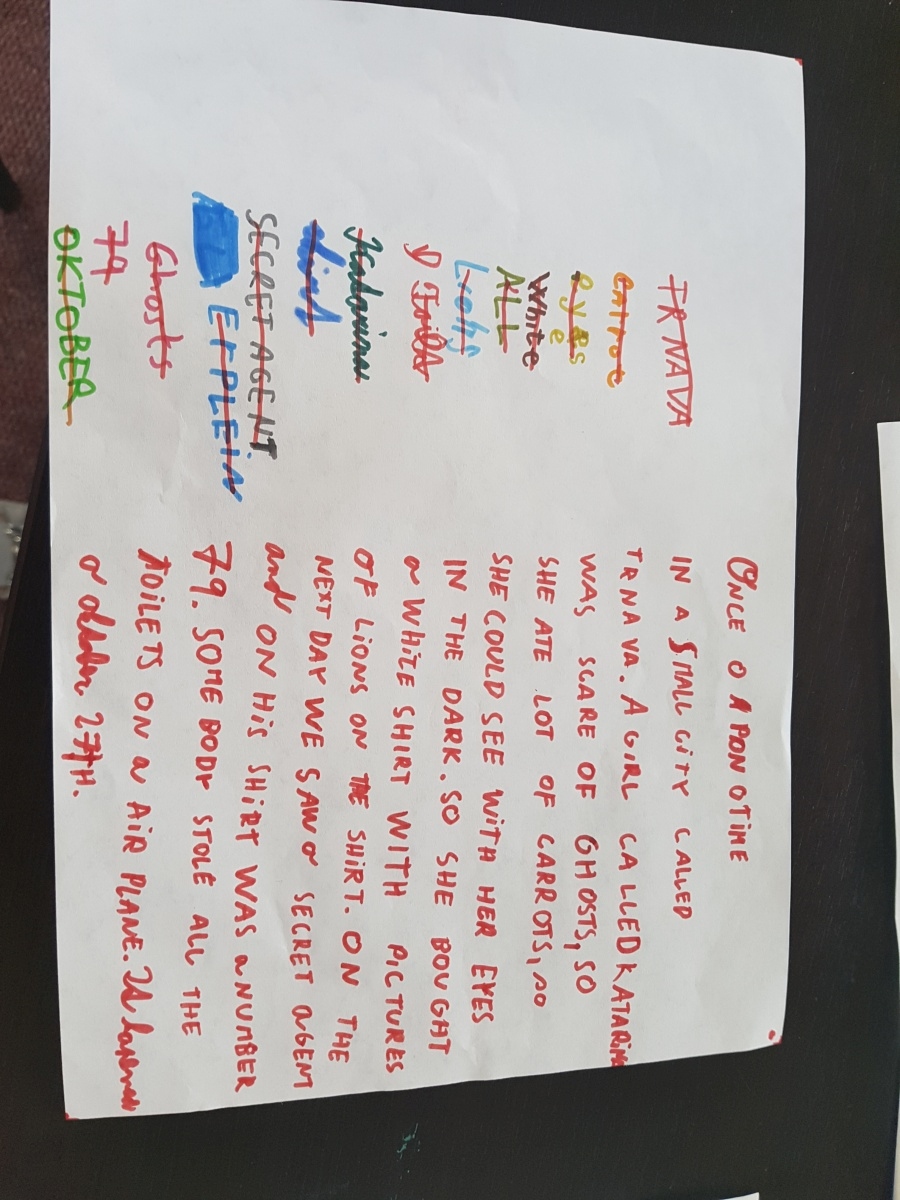 TRNAVA
CARROT
eyes
e
White
ALL
Lions
Katarina
Shirt
SECRET AGENT.
ERPLEIN
Ghosts
79
OKTOBER
ONCE O A PON OTIME
IN A SMALL CITY CALLED
TRNAVA. A GIRL CALLED KATARINA
WAS SCARE OF GHOSTS, SO
SHE ATE LOT OF CARROTS, so
SHE COULD SEE WITH HER EYES
IN THE DARK. SO SHE BOUGHT
a WHITE SHIRT WITH PICTURES
OF LIONS ON THE SHIRT. ON THE
NEXT DAY WE SAW a SECRET aGENT
and ON HIS SHIRT WAS a NUMBER
79. SOME BODY STOLE ALL THE
TOILETS ON a AIR PLANE. It hapened
27TH.